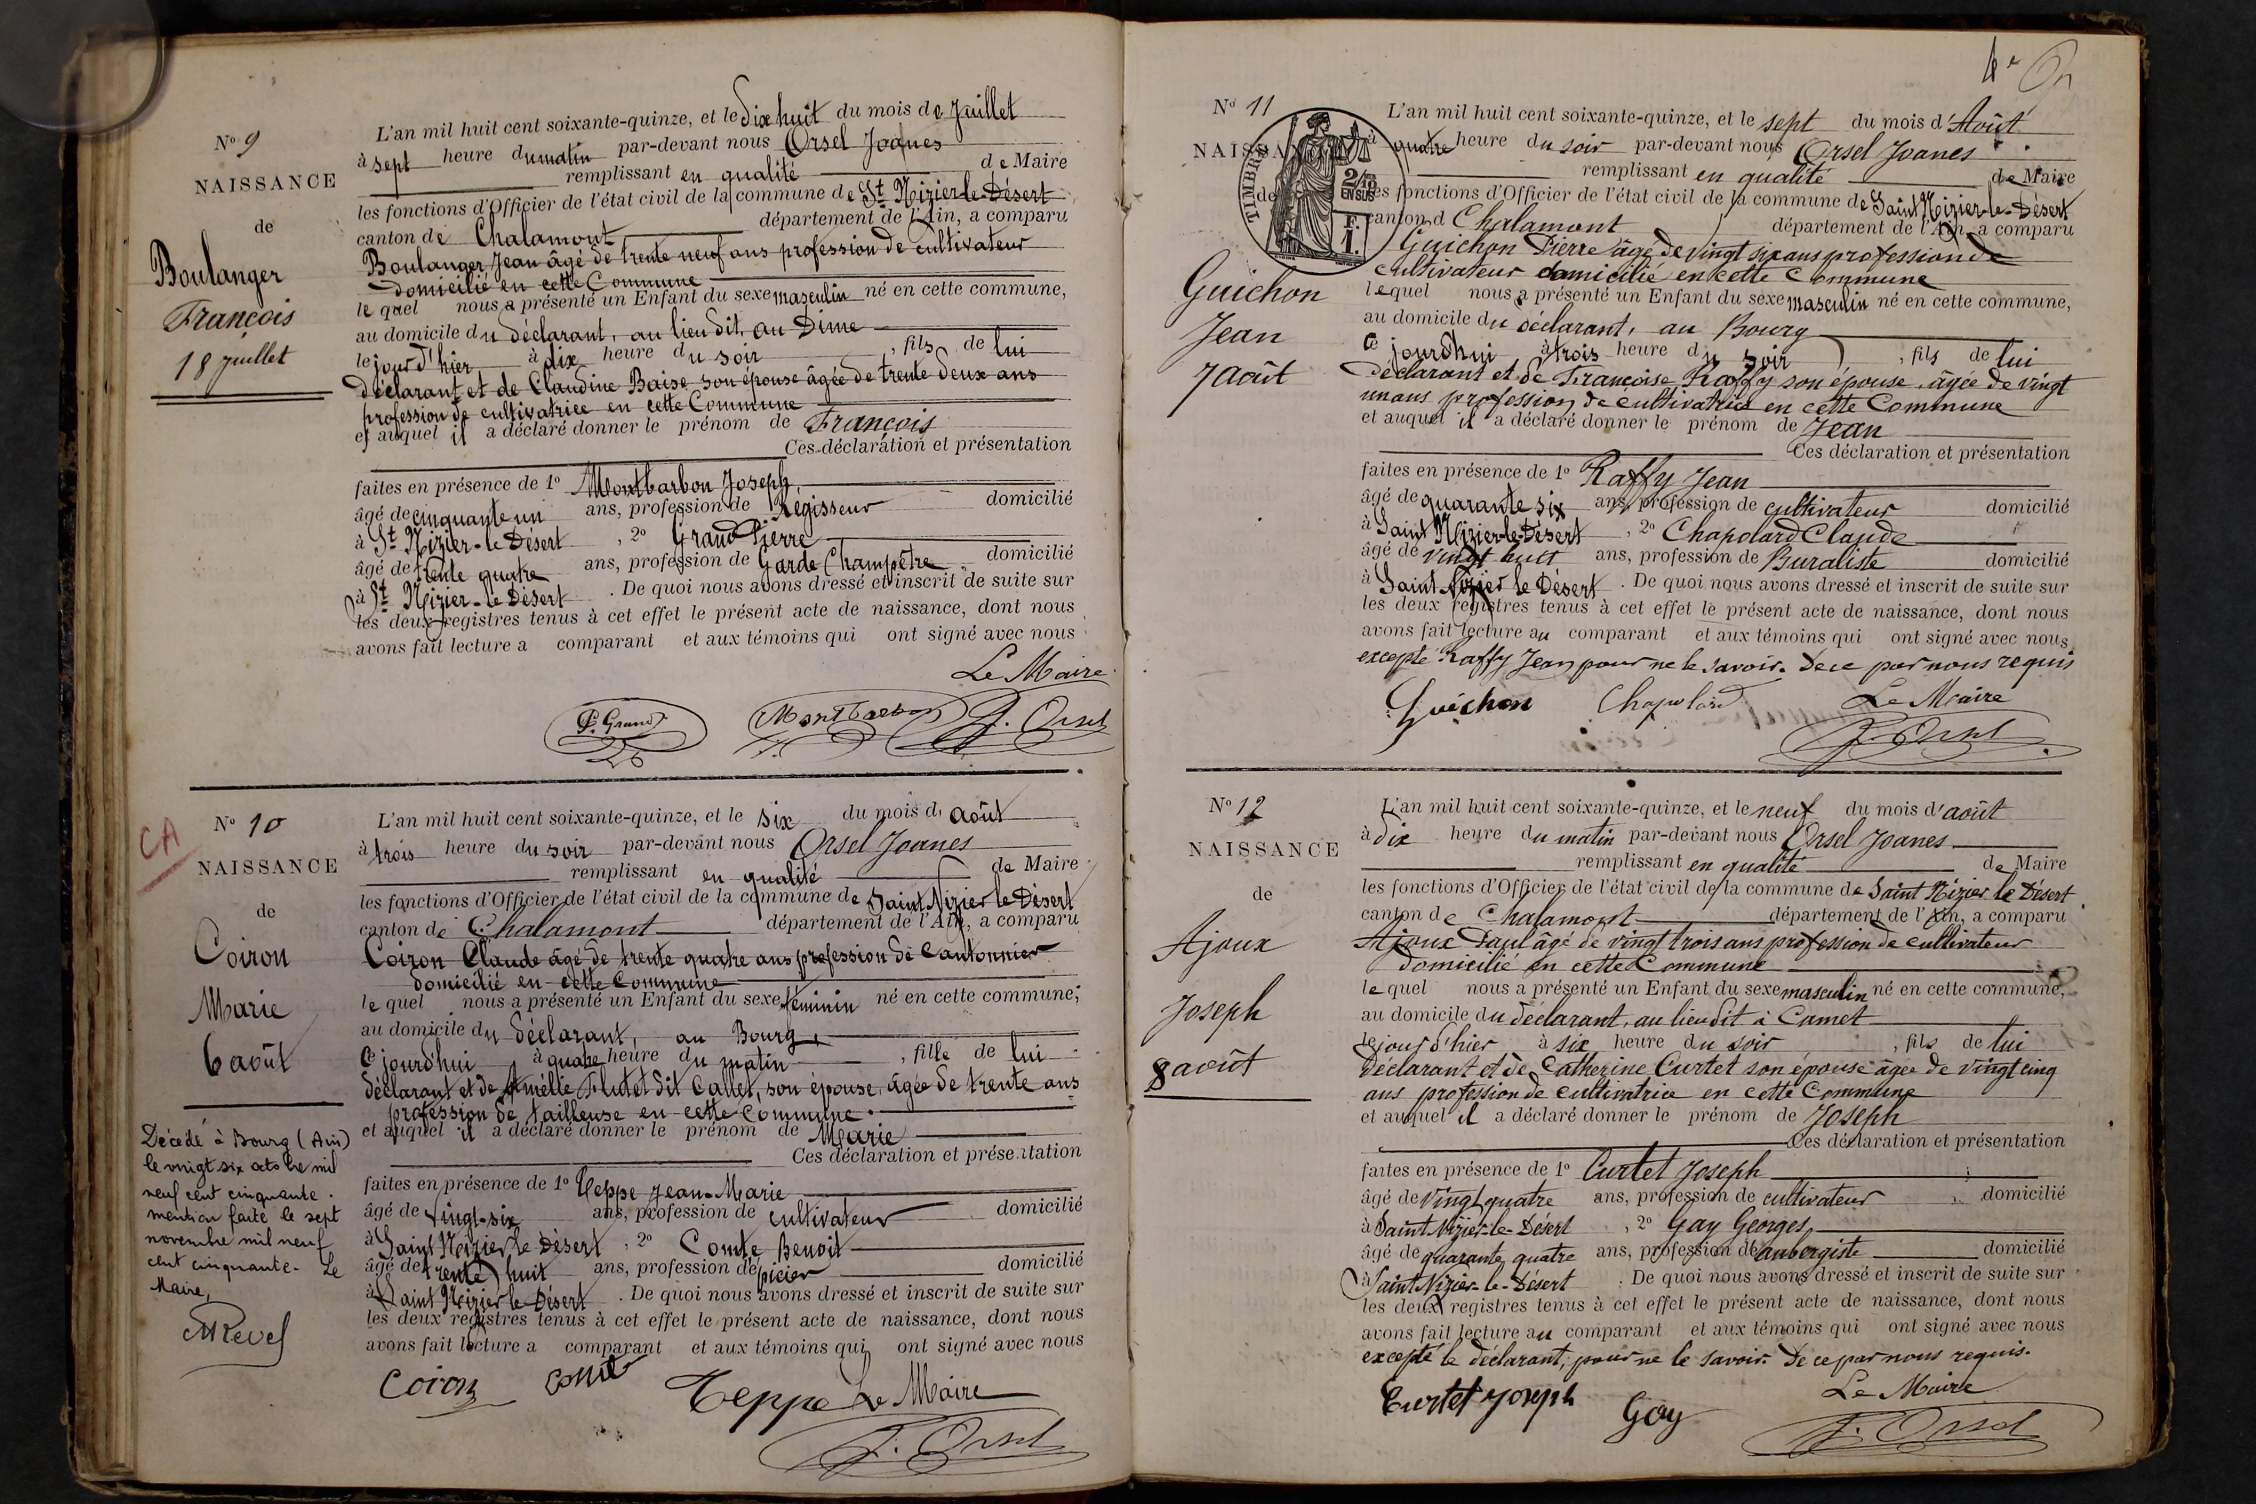 Nº 9
NAISSANCE
de
Boulanger
François
18 juillet
L'an mil huit cent soixante-quinze, et le dix huit du mois de Juillet
à sept heure du matin par-devant nous Orsel Joanes
remplissant en qualité de Maire
les fonctions d'Officier de l'état civil de la commune de St Nizier-le-Désert
canton de Chalamont département de l'Ain, a comparu
Boulanger Jean âgé de trente neuf ans profession de cultivateur
domicilié en cette Commune
le quel nous a présenté un Enfant du sexe masculin né en cette commune,
au domicile du déclarant, au lieu dit, au Dime
le jour d'hier à dix heure du soir, fils de lui
déclarant et de Claudine Baise son épouse âgée de trente deux ans
profession de cultivatrice en cette Commune
et auquel il a déclaré donner le prénom de François
Ces déclaration et présentation
faites en présence de 1º Montbarbon Joseph,
âgé de cinquante un ans, profession de Régisseur domicilié
à St Nizier-le Désert, 2º Grand Pierre
âgé de trente quatre ans, profession de Garde Champêtre domicilié
à St Nizier-le Désert. De quoi nous avons dressé et inscrit de suite sur
les deux registres tenus à cet effet le présent acte de naissance, dont nous
avons fait lecture a comparant et aux témoins qui ont signé avec nous
Le Maire
P. Grand Montbarbon J. Orsel
CA
Nº 10
NAISSANCE
de
Coiron
Marie
6 août
Décédé à Bourg (Ain)
le vingt six octobre mil
neuf cent cinquante.
mention faite le sept
novembre mil neuf
cent cinquante. Le
Maire,
L'an mil huit cent soixante-quinze, et le six du mois d août
à trois heure du soir par-devant nous Orsel Joanes
remplissant en qualité de Maire
les fonctions d'Officier de l'état civil de la commune de Saint Nizier le Désert
canton de Chalamont département de l'Ain, a comparu
Coiron Claude âgé de trente quatre ans profession de Cantonnier
domicilié en cette Commune
le quel nous a présenté un Enfant du sexe féminin né en cette commune,
au domicile du déclarant, au Bourg,
ce jourd'hui à quatre heure du matin, fille de lui
déclarant et de Amélie Flutet dit Callet, son épouse, âgée de trente ans
profession de tailleuse en cette commune.
et auquel il a déclaré donner le prénom de Marie
Ces déclaration et présentation
faites en présence de 1º Teppe Jean-Marie
âgé de vingt-six ans, profession de cultivateur domicilié
à Saint Nizier le Désert, 2º Comte Benoit
âgé de trente huit ans, profession d'épicier domicilié
à Saint Nizier le Désert. De quoi nous avons dressé et inscrit de suite sur
les deux registres tenus à cet effet le présent acte de naissance, dont nous
avons fait lecture a comparant et aux témoins qui ont signé avec nous
Coiron Comte Teppe Le Maire
J. Orsel
Nº 11
NAISSA
de
TIMBRE
2/10
EN SUS
F.
1.
Guichon
Jean
7 août
L'an mil huit cent soixante-quinze, et le sept du mois d'Août
à quatre heure du soir par-devant nous Orsel Joanes
remplissant en qualité de Maire
les fonctions d'Officier de l'état civil de la commune de Saint Nizier-le-Désert
canton d Chalamont département de l'Ain a comparu
Guichon Pierre âgé de vingt six ans profession de
cultivateur domicilié en cette Commune
lequel nous a présenté un Enfant du sexe masculin né en cette commune,
au domicile du déclarant, au Bourg
ce jourd'hui à trois heure du soir, fils de lui
déclarant et de Françoise Raffy son épouse, âgée de vingt
un ans profession de cultivatrice en cette Commune
et auquel il a déclaré donner le prénom de Jean
Ces déclaration et présentation
faites en présence de 1º Raffy Jean
âgé de quarante six ans, profession de cultivateur domicilié
à Saint Nizier-le-Désert, 2º Chapolard Claude
âgé de vingt huit ans, profession de Buraliste domicilié
à Saint Nizier le Désert. De quoi nous avons dressé et inscrit de suite sur
les deux registres tenus à cet effet le présent acte de naissance, dont nous
avons fait lecture au comparant et aux témoins qui ont signé avec nous
excepté Raffy Jean pour ne le savoir. De ce par nous requis
Guichon Chapolard Le Maire
J. Orsel
Nº 12
NAISSANCE
de
Ajoux
Joseph
8 août
L'an mil huit cent soixante-quinze, et le neuf du mois d'août
à dix heure du matin par-devant nous Orsel Joanes
remplissant en qualité de Maire
les fonctions d'Officier de l'état civil de la commune de Saint Nizier le Désert
canton de Chalamont département de l'Ain, a comparu
Ajoux Paul âgé de vingt trois ans profession de cultivateur
domicilié en cette Commune
le quel nous a présenté un Enfant du sexe masculin né en cette commune,
au domicile du déclarant, au lieu dit à Camet
le jour d'hier à six heure du soir, fils de lui
déclarant et de Catherine Curtet son épouse âgée de vingt cinq
ans profession de cultivatrice en cette Commune
et auquel il a déclaré donner le prénom de Joseph
Ces déclaration et présentation
faites en présence de 1º Curtet Joseph
âgé de vingt quatre ans, profession de cultivateur domicilié
à Saint Nizier-le-Désert, 2º Gay Georges,
âgé de quarante quatre ans, profession d'aubergiste domicilié
à Saint Nizier-le-Désert. De quoi nous avons dressé et inscrit de suite sur
les deux registres tenus à cet effet le présent acte de naissance, dont nous
avons fait lecture au comparant et aux témoins qui ont signé avec nous
excepté le déclarant, pour ne le savoir. De ce par nous requis.
Curtet Joseph Gay Le Maire
J. Orsel